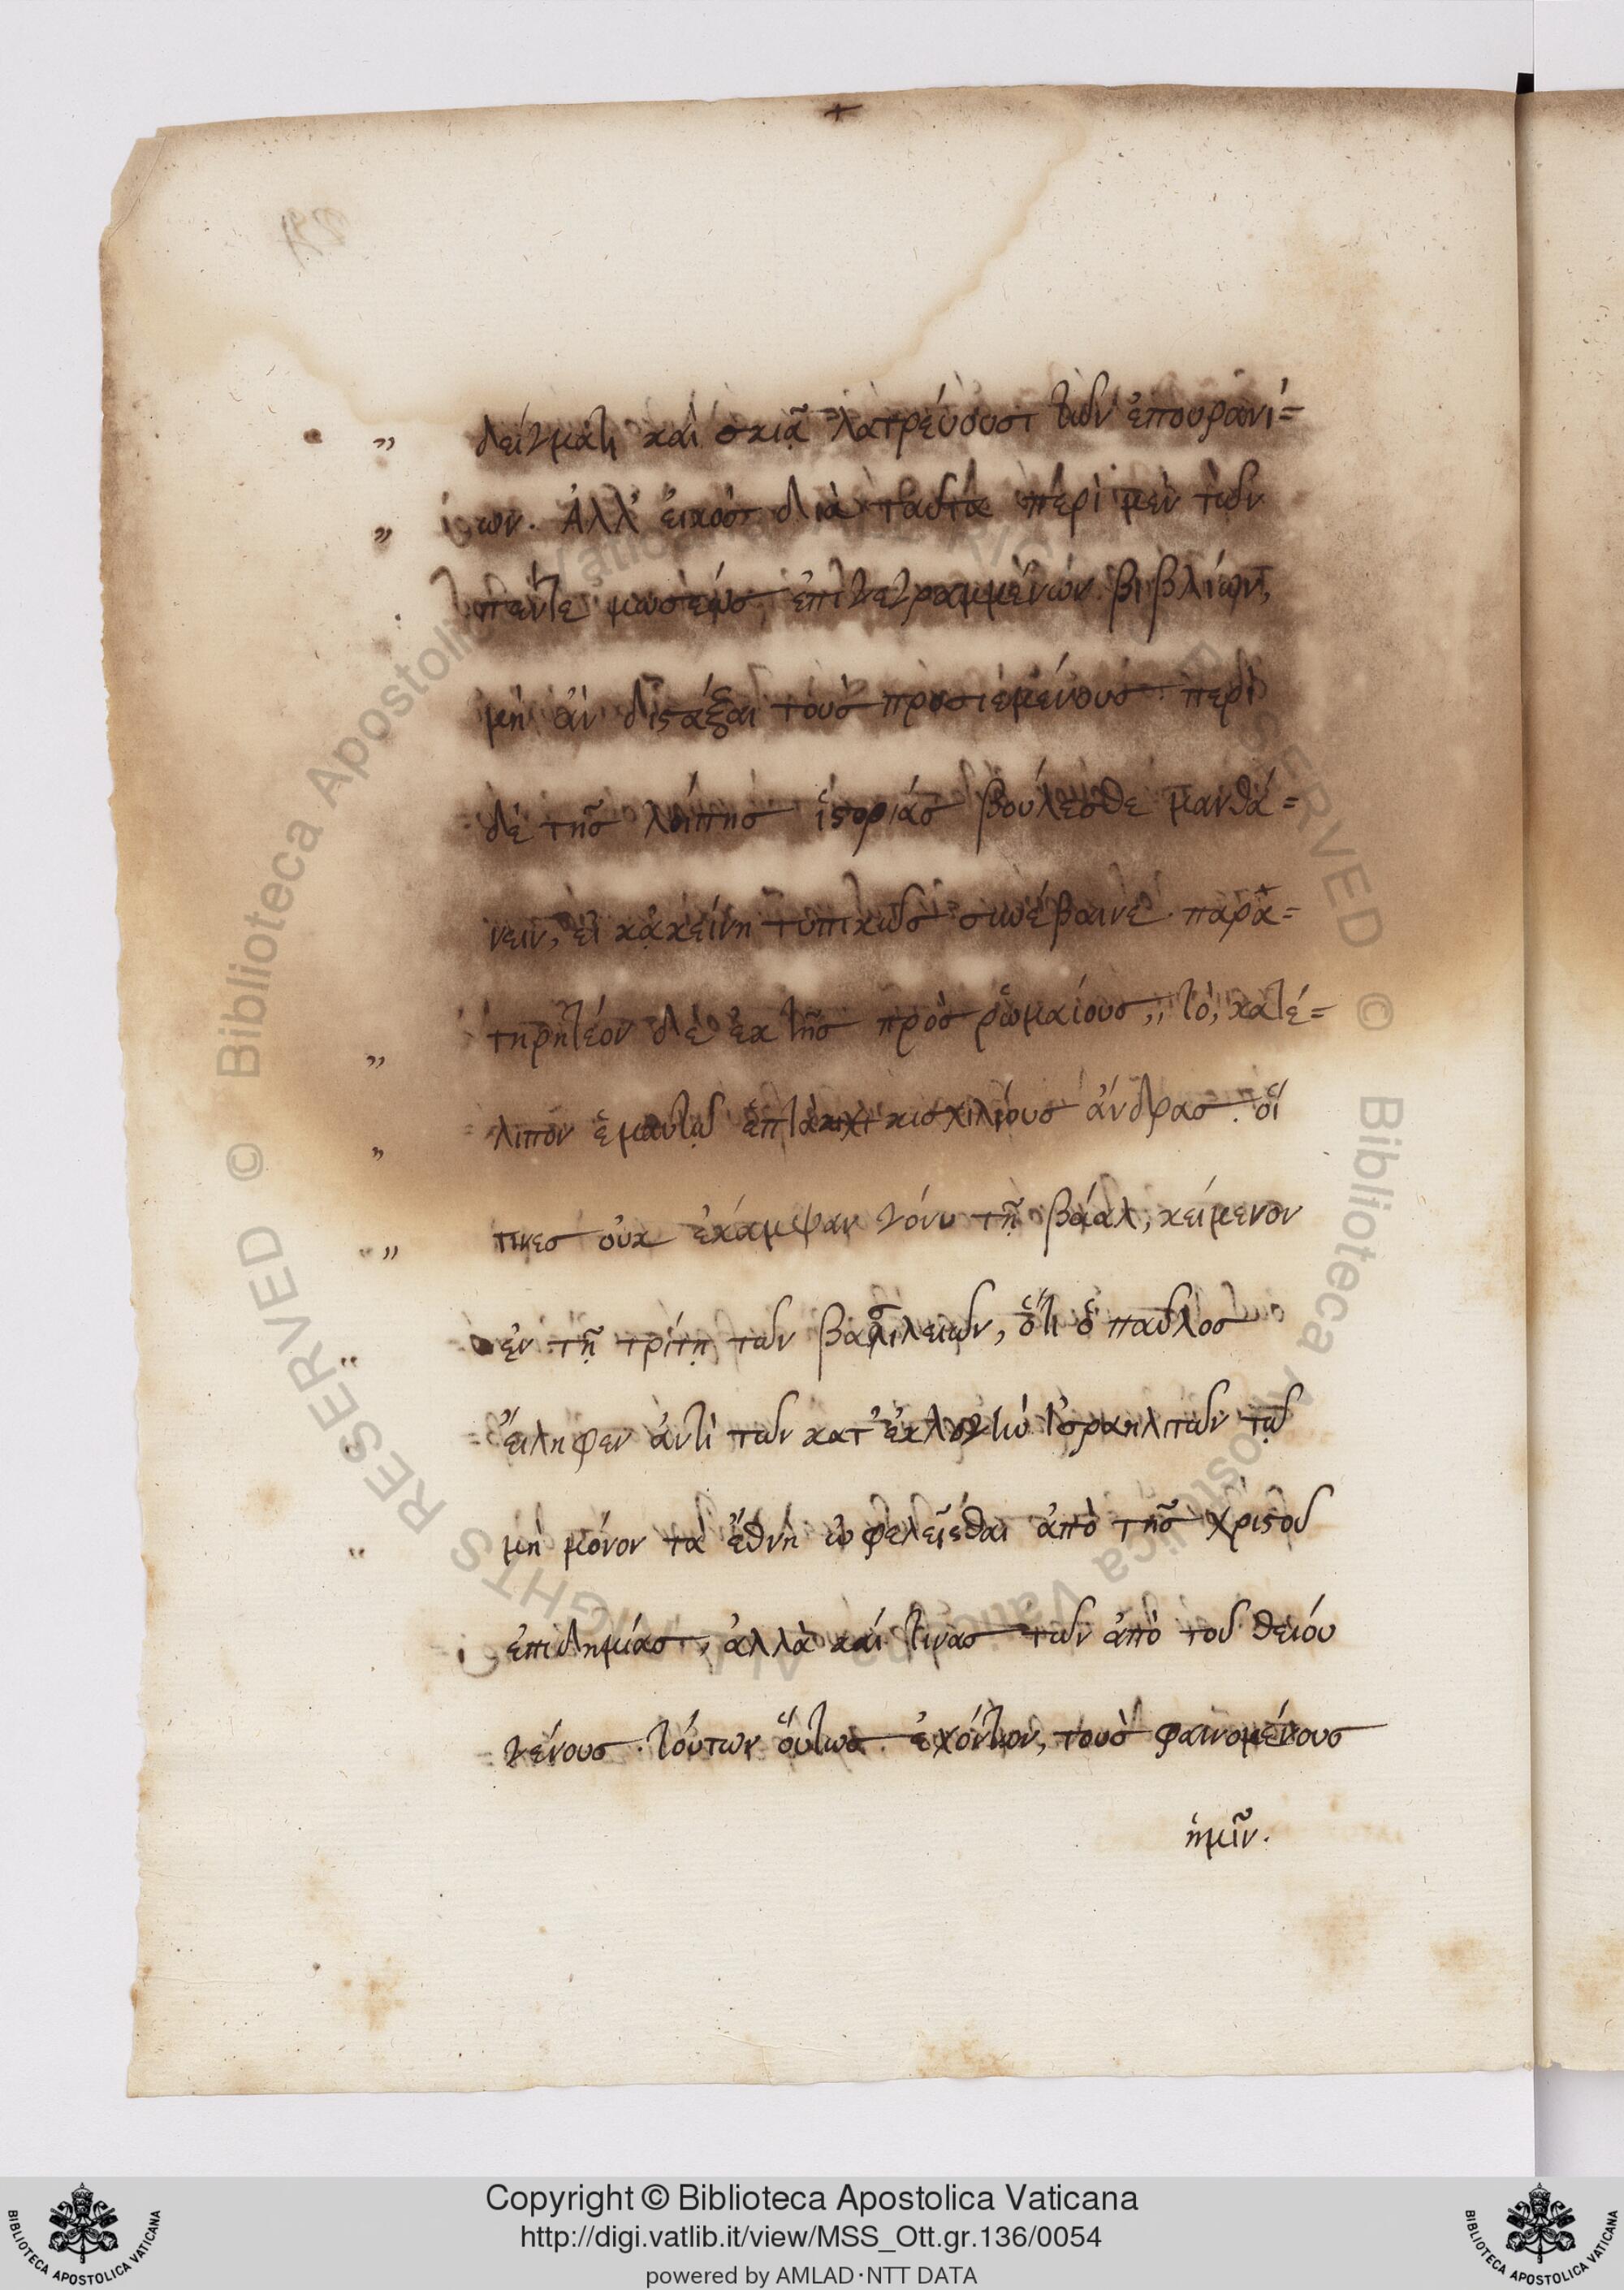 δείγματι καὶ σκιᾷ λατρεύουσι τῶν ἐπουρανί=
ων. Ἀλλ' εἰκὸσ διὰ ταῦτα περὶ μὲν τῶν
πέντε μωσέωσ, ἐπιγεγραμμένων βιβλίων,
μὴ ἂν διςάξαι τοὺσ προσιεμένουσ. περὶ
δὲ τῆσ λοίπησ ἱςορίασ βούλεσθε μανθά=
νειν, εἰ κᾀκείνη τυπικῶσ συνέβαινε. παρα=
τηρητέον δὲ ἐκ τῆσ πρὸσ ῥωμαίουσ, τό, κατέ=
λιπον ἐμαυτῷ ἑπτάκισχιλίουσ ἄνδρασ. οἵ
τινεσ οὐκ ἐκάμψαν γόνυ τῇ βάαλ, κείμενον
ἐν τῇ τρίτῃ τῶν βασιλειῶν, ὅτι ὁ παῦλοσ
ἔιληφεν ἀντὶ τῶν κατ' ἐκλογὴν ἰσραηλιτῶν τῷ
μὴ μόνον τὰ ἔθνη ὠφελεῖςθαι ἀπὸ τῆσ χριςοῦ
ἐπιδημίασ, ἀλλὰ καί τινασ τῶν ἀπὸ τοῦ θείου
γένουσ. τούτων ὅυτωσ ἐχόντων, τοὺσ φαινομένουσ
ἡμῖν.
© Biblioteca Apostolica Vaticana ALL RIGHTS RESERVED © Biblioteca Apostolica Vaticana ALL RIGHTS RESERVED
Copyright © Biblioteca Apostolica Vaticana
http://digi.vatlib.it/view/MSS_Ott.gr.136/0054
powered by AMLAD·NTT DATA
BIBLIOTECA APOSTOLICA VATICANA
BIBLIOTECA APOSTOLICA VATICANA